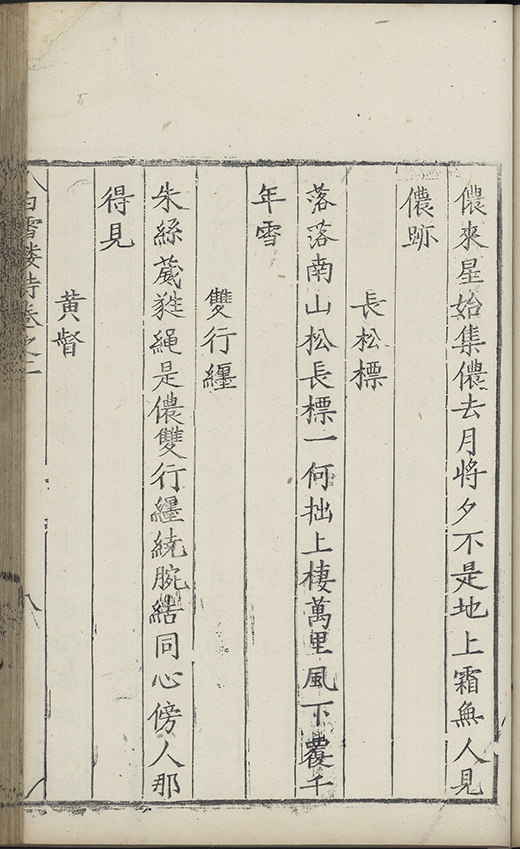 儂來星始集儂去月將夕不是地上霜無人見
儂跡
長松標
落落南山松長標一何拙上棲萬里風下覆千
年雪
雙行纏
朱絲葳蕤繩是儂雙行纏繞腕結同心傍人那
得見
黃督
白雪樓詩卷之一
八